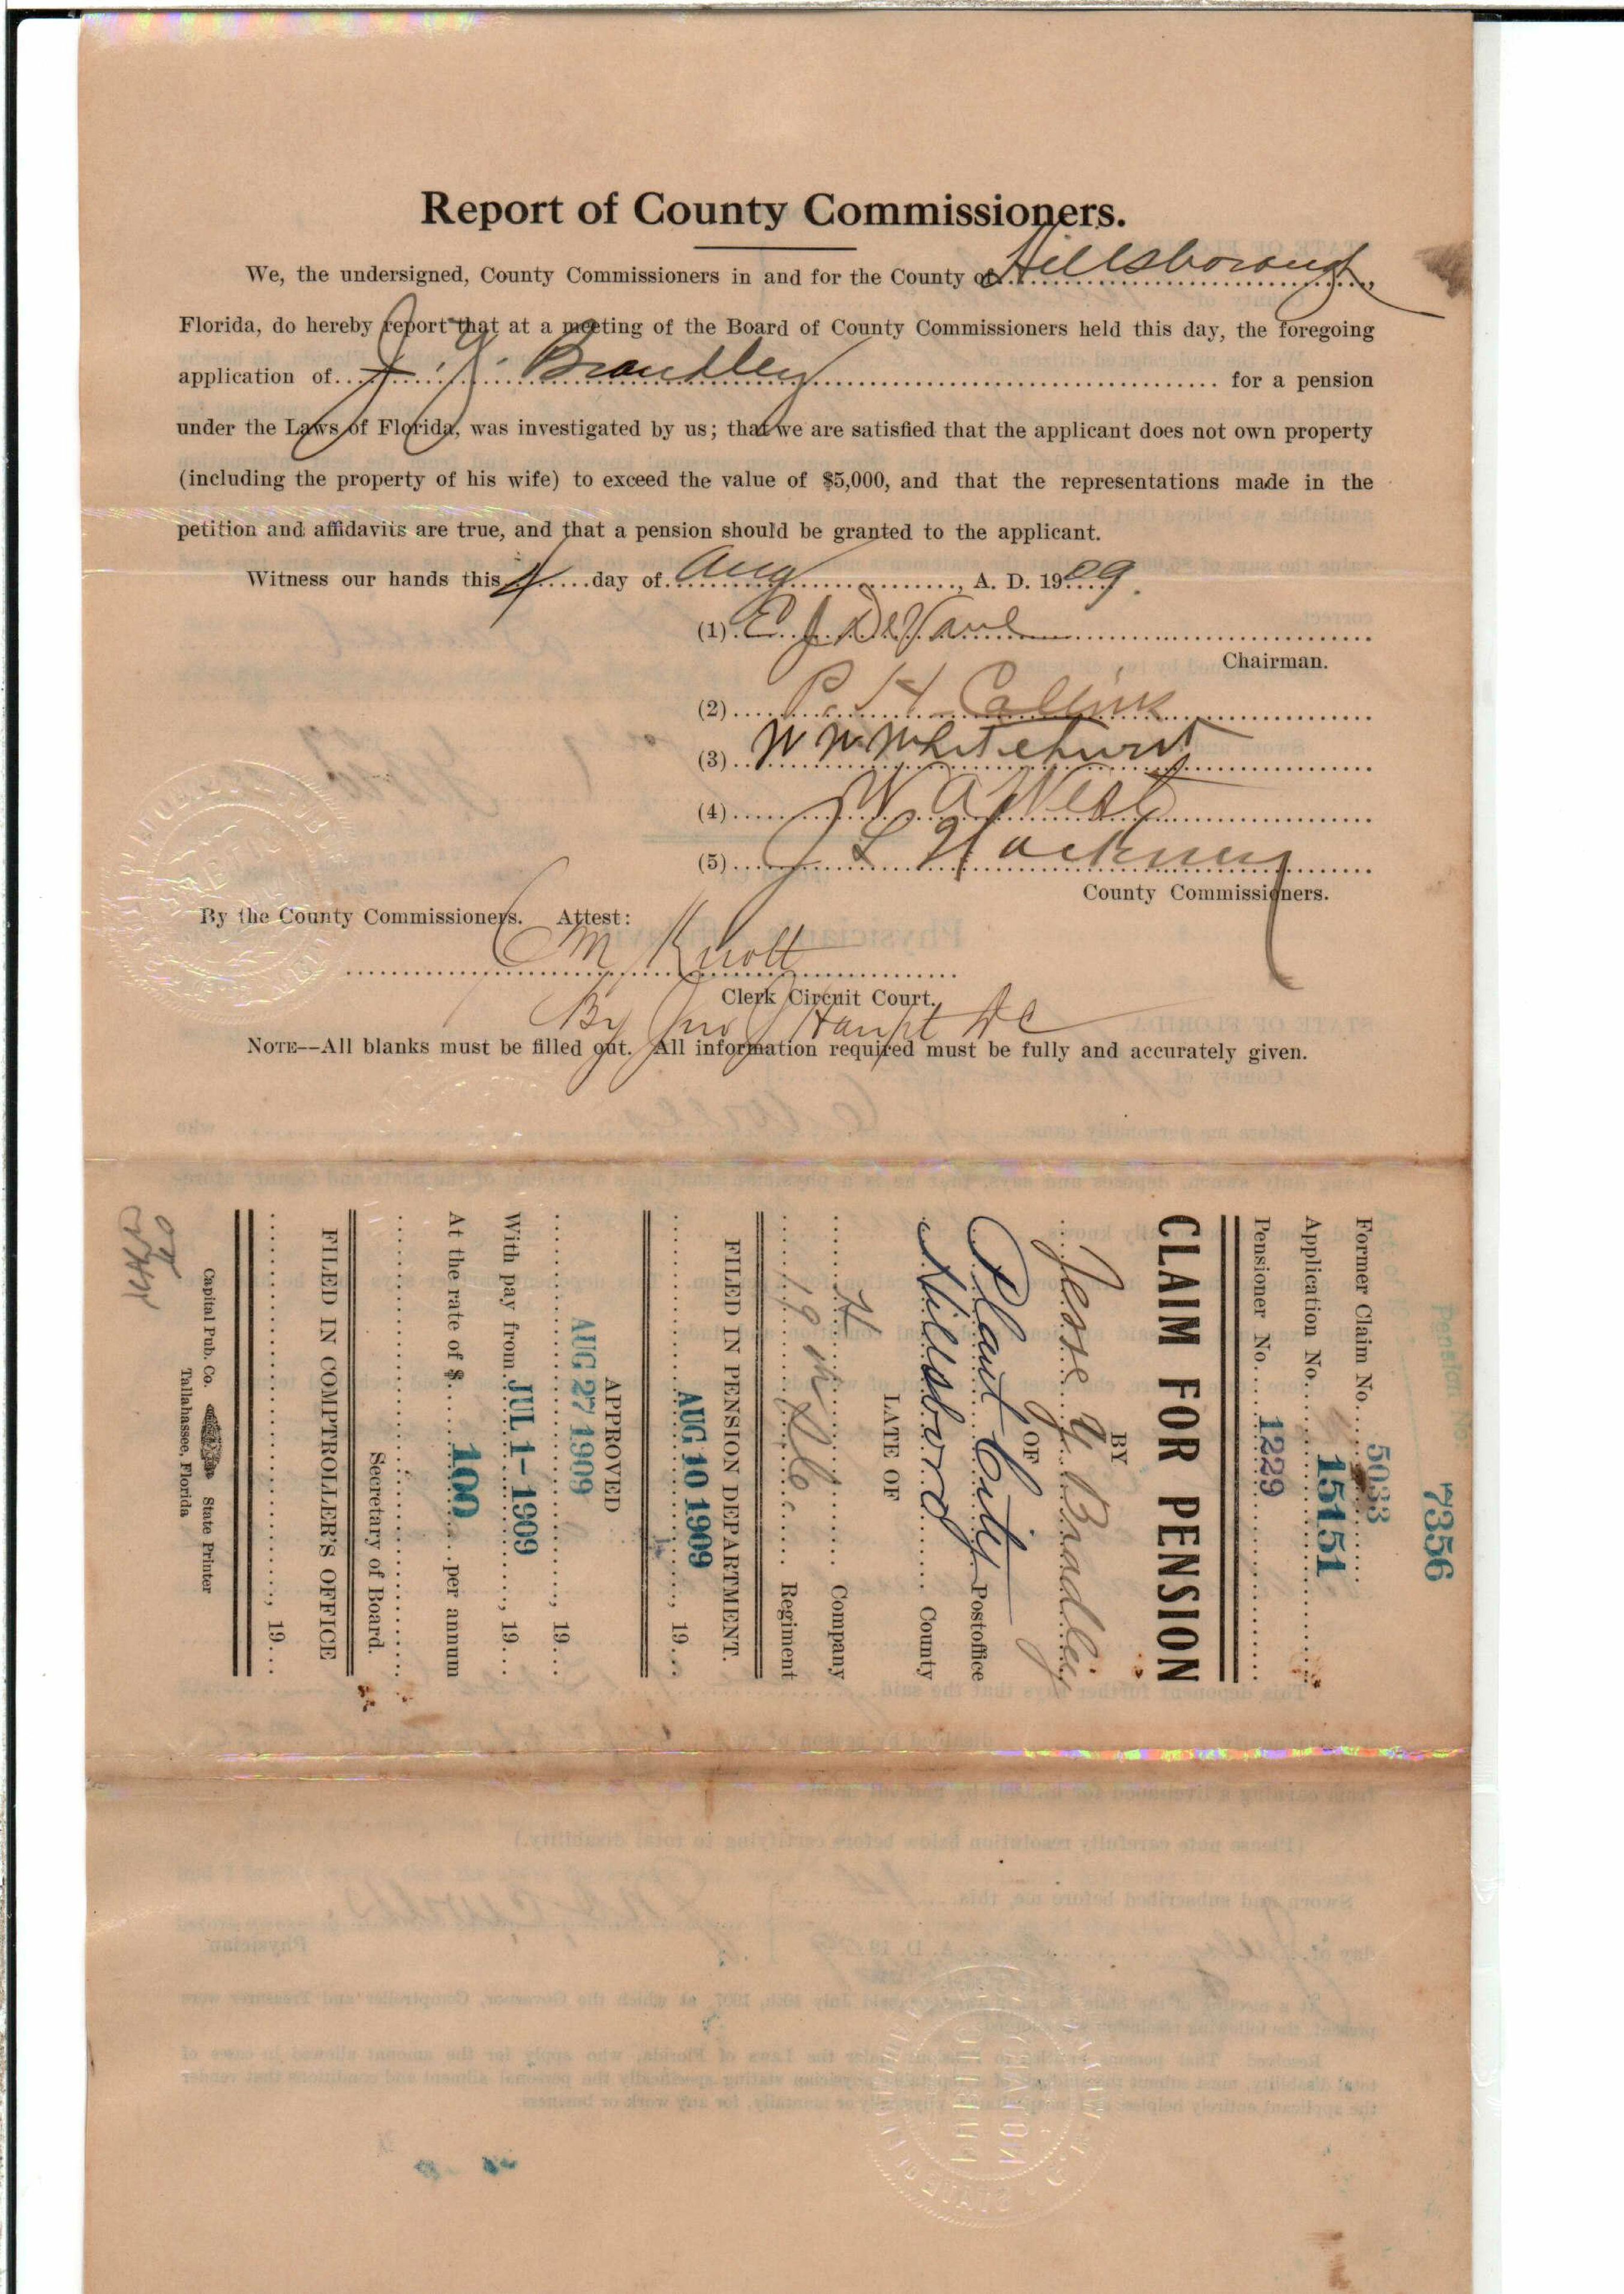 Report of County Commissioners.
We, the undersigned, County Commissioners in and for the County of Hillsborough,
Florida, do hereby report that at a meeting of the Board of County Commissioners held this day, the foregoing
application of J. G. Brandley for a pension
under the Laws of Florida, was investigated by us; that we are satisfied that the applicant does not own property
(including the property of his wife) to exceed the value of $5,000, and that the representations made in the
petition and affidavits are true, and that a pension should be granted to the applicant.
Witness our hands this 4 day of Aug, A. D. 1909.
(1) E J DeVane
Chairman.
(2) P. H Collins
(3) W W Whitehurst
(4) W A West
(5) J L Hackney
County Commissioners.
By the County Commissioners. Attest:
C M Knott
Clerk Circuit Court.
By Jno J Haupt DC
NOTE--All blanks must be filled out. All information required must be fully and accurately given.
7356
Former Claim No. 5033
Application No. 15151
Pensioner No. 1229
CLAIM FOR PENSION
BY
Jesse G. Bradley
OF
Plant City Postoffice
Hillsboro County
LATE OF
H Company
19 Regiment
FILED IN PENSION DEPARTMENT.
AUG 10 1909, 19
APPROVED
AUG 27 1909, 19
With pay from JUL 1- 1909, 19
At the rate of $ 100 per annum
Secretary of Board.
FILED IN COMPTROLLER'S OFFICE
, 19
Capital Pub. Co. State Printer
Tallahassee, Florida